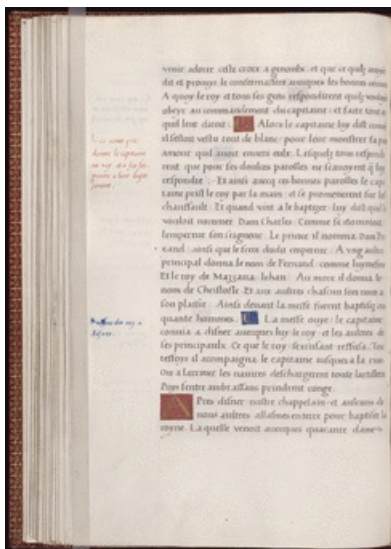 venir adorer ceste croix a genoulx: et que ce quilz avoyent
dit et promys le confirmeroient avecques les bonnes œuvres
A quoy le roy et tous ses gens respondirent quilz vouloient
obeyr au commandement du capitaine: et faire tout ce
quil leur diroit. Alors le capitaine luy dist comme
il sestoit vestu tout de blanc pour leur monstrer sa pure
amour quil avoit envers eulx. Lesquelz tous respondi-
rent que pour ses doulces parolles ne scavoyent que luy
respondre: Et ainsi avecq ces bonnes parolles le capi-
taine prist le roy par la main: et se pourmenerent sur les
chauffault. Et quand vint a le baptizer: luy dist quil le
vouloit nommer Dam Charles: Comme se nommoit
lempereur son seigneur. Le prince il nomma Dam Fer-
nand: ainsi que le frere dudit empereur: A vng aultre
principal donna le nom de Fernand: comme luy mesme
Et le roy de Mazzana Iehan: Au more il donna le
nom de Christofle. Et aux aultres chascun son nom a
son plaisir: Ainsi devant la messe furent baptisez cin-
quante hommes. La messe ouye: le capitaine
convia a disner avecques luy le roy: et les aultres de
ses principaulx. Ce que le roy sexcusant reffusa. Tou-
tesfoys il acompaigna le capitaine jusques a la rive
Ou a larriver les navires deschargerent toute lartillerie
Puys sentre ambrassans prindrent conge.
Apres disner nostre chappelain et aulcuns de
nous aultres allasmes en terre pour baptiser la
royne. Laquelle venoit avecques quarante dames
Les noms que
donna le capitaine
au roy